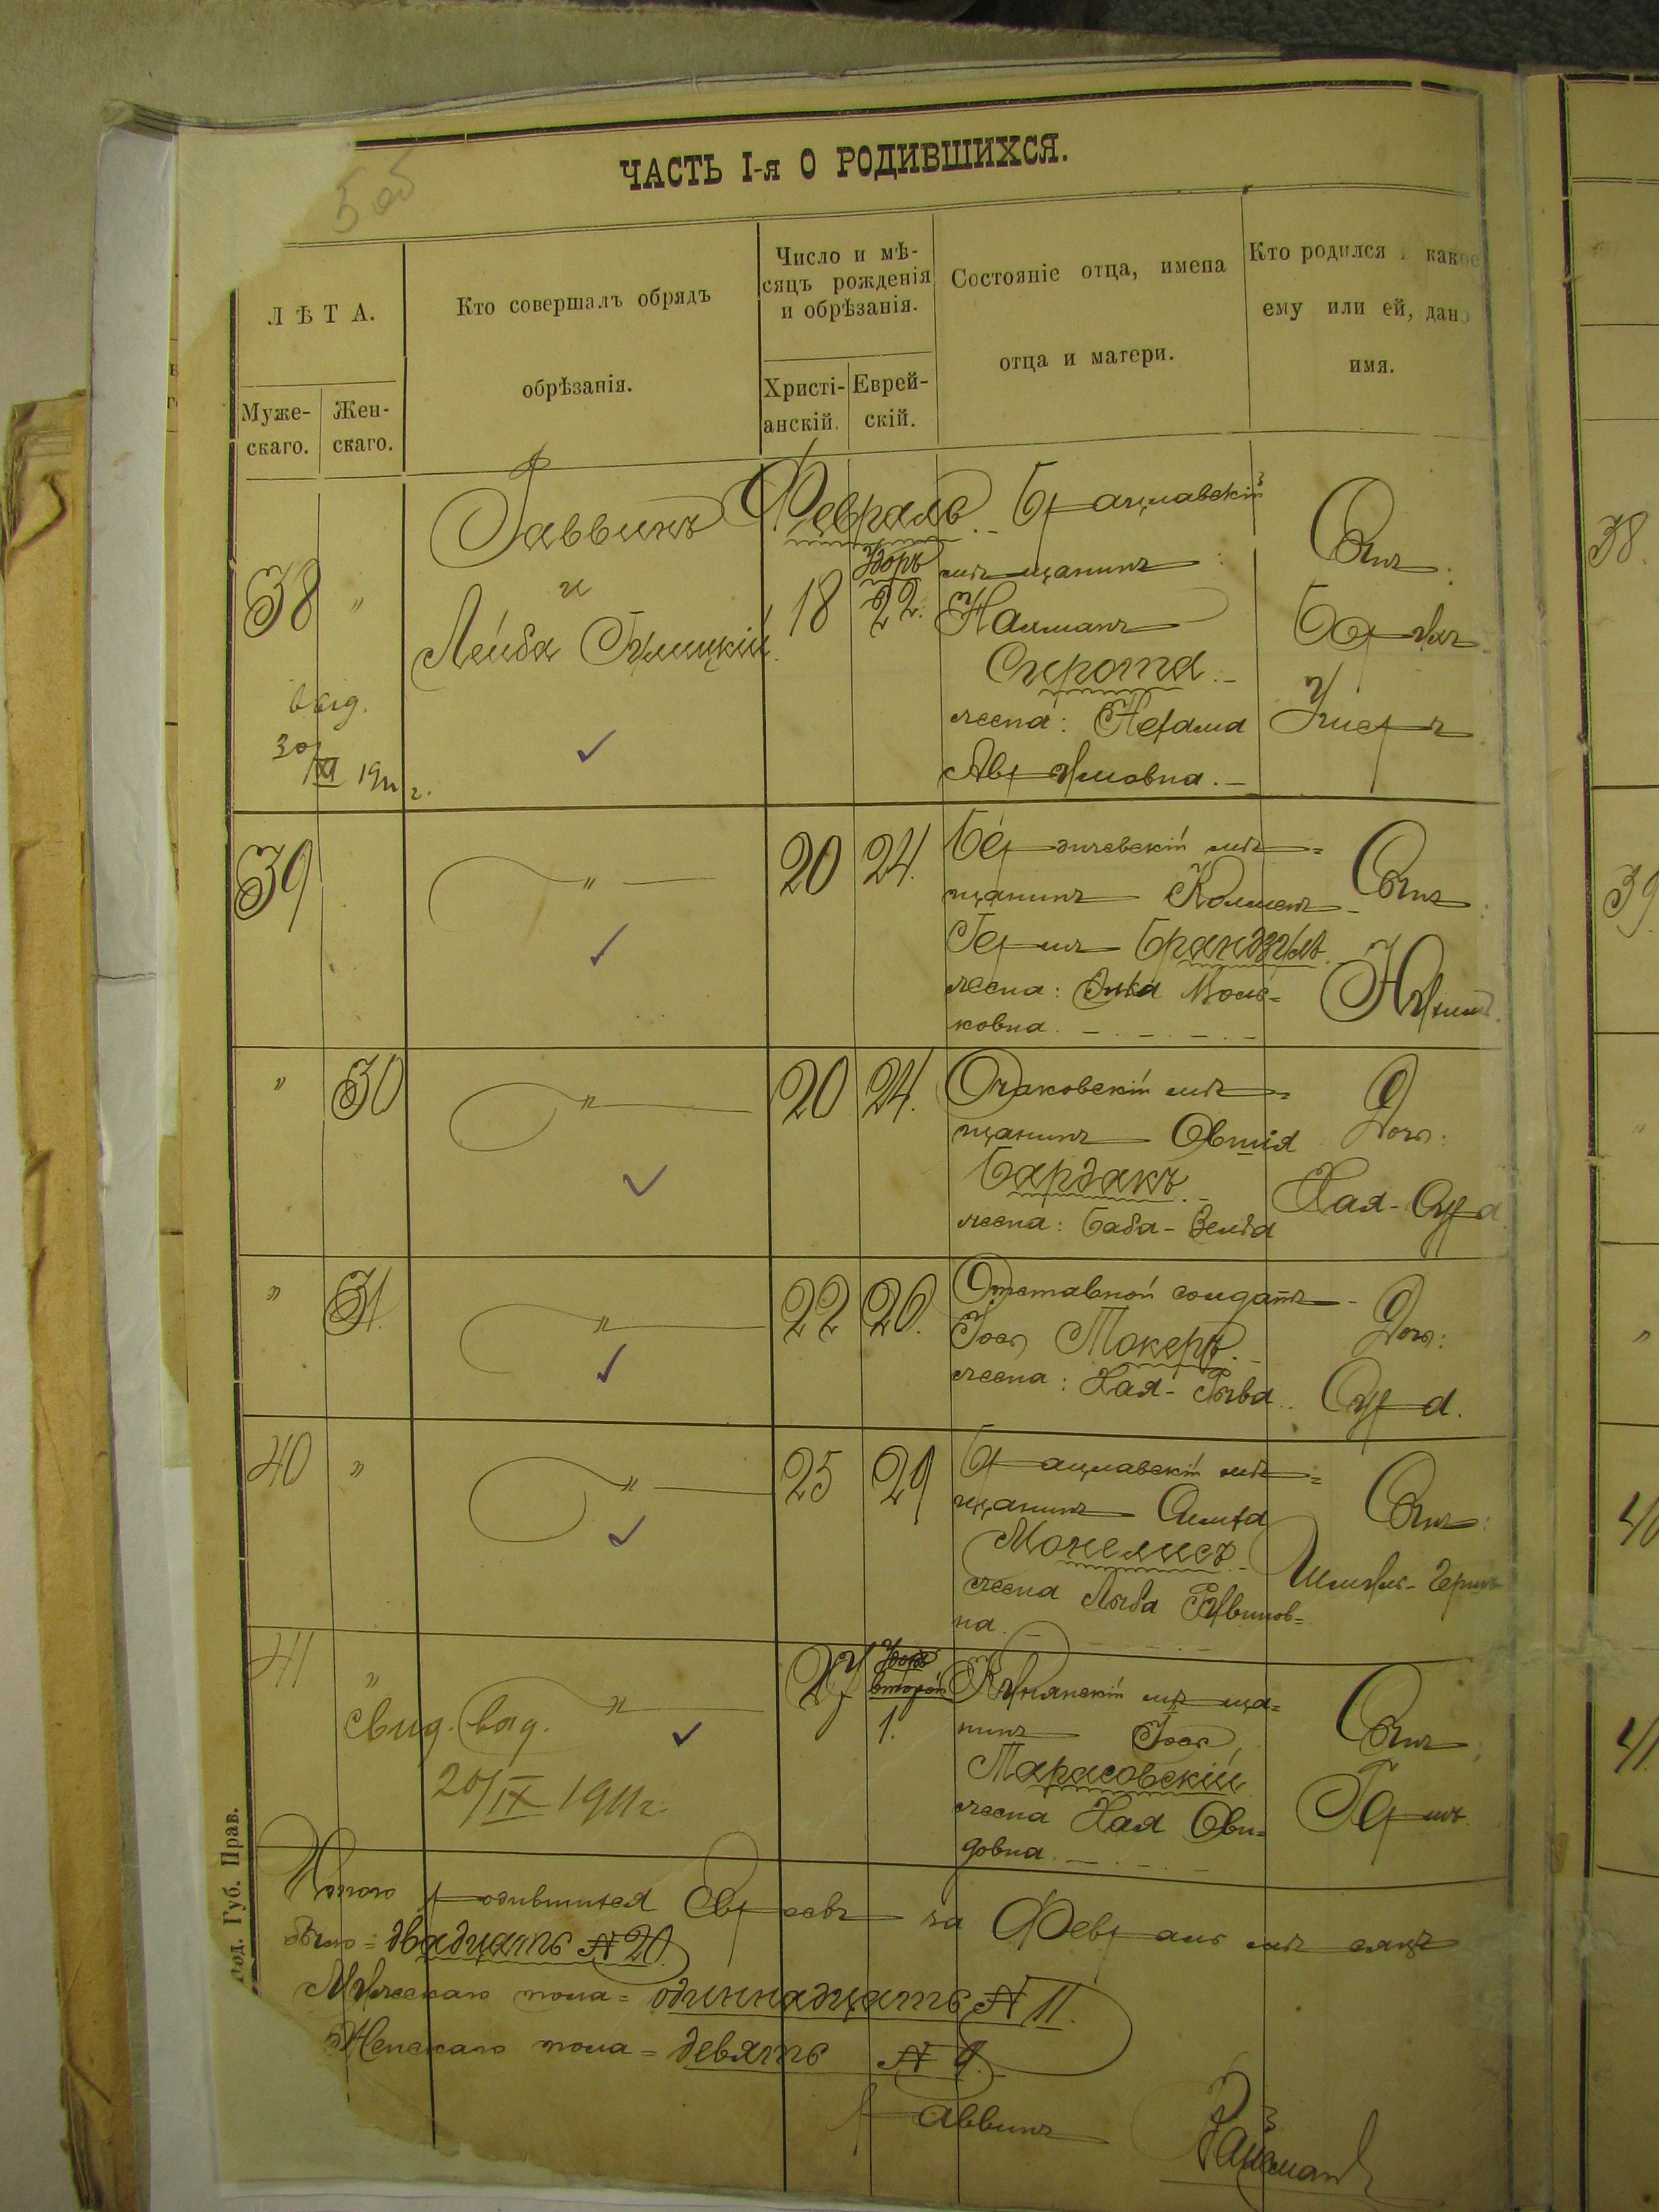 5 об
ЧАСТЬ I-я О РОДИВШИХСЯ.
ЛѢТА.
Муже-
скаго.
Жен-
скаго.
Кто совершалъ обрядъ
обрѣзанія.
Число и мѣ-
сяцъ рожденія
и обрѣзанія.
Христі-
анскій.
Еврей-
скій.
Состояніе отца, имена
отца и матери.
Кто родился какое
ему или ей, дано
имя.
38 "
выд.
30/XI 1911 г.
Раввинъ
и
Лейба
Февраль
18
Адоръ
22.
Брацлавскій
мѣщанинъ:
Нахманъ
Сирота.
жена: Нехама
Аврумовна.
Сынъ:
Борухъ
39
"
20 24.
Бердичевскій мѣ=
щанинъ
Герш
жена: Энта Мош=
ковна.
Сынъ:
" 30
"
20 24.
Очаковскій мѣ=
щанинъ Овшія
Бардакъ.
жена: Баба-Зельда
Дочь:
Хая-Сура.
" 31.
"
22 26.
Отставной солдатъ
Іось Токеръ.
жена: Хая-Рыва.
Дочь:
Сура.
40 "
"
25 29
Брацлавскій мѣ=
щанинъ Симха
жена Лыба Рувинов=
на.
Сынъ:
Шмуль-Гершъ
41 "
"
свид. выд.
20/IX 1911 г.
27
Адоръ
второй
1.
мѣща=
нинъ Іось
Тарасовскій
жена Хая Ови=
довна.
Сынъ:
Гершъ.
Итого родившихся Евреевъ за Февраль мѣсяцъ
было = двадцать № 20.
Мужескаго пола = одиннадцать № 11.
Женскаго пола = девять № 9.
раввинъ
под. Губ. Прав.
38.
39.
"
"
40
41.